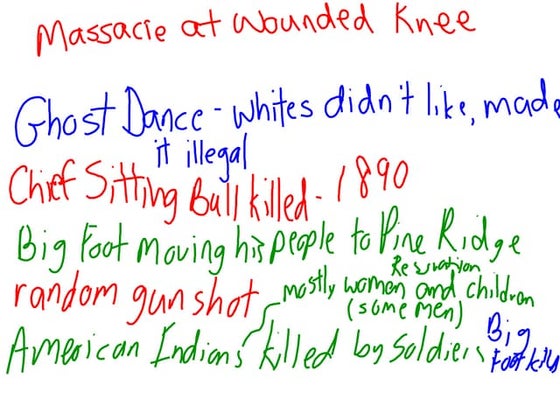 Massacie at Wounded Knee
Ghost Dance - whites didn't like, made
it illegal
Chief Sitting Bull killed - 1890
Big Foot moving his people to Pine Ridge
Resuration
random gun shot
mostly women and children
(some men)
American Indians killed by soldiers
Big
Foot kill